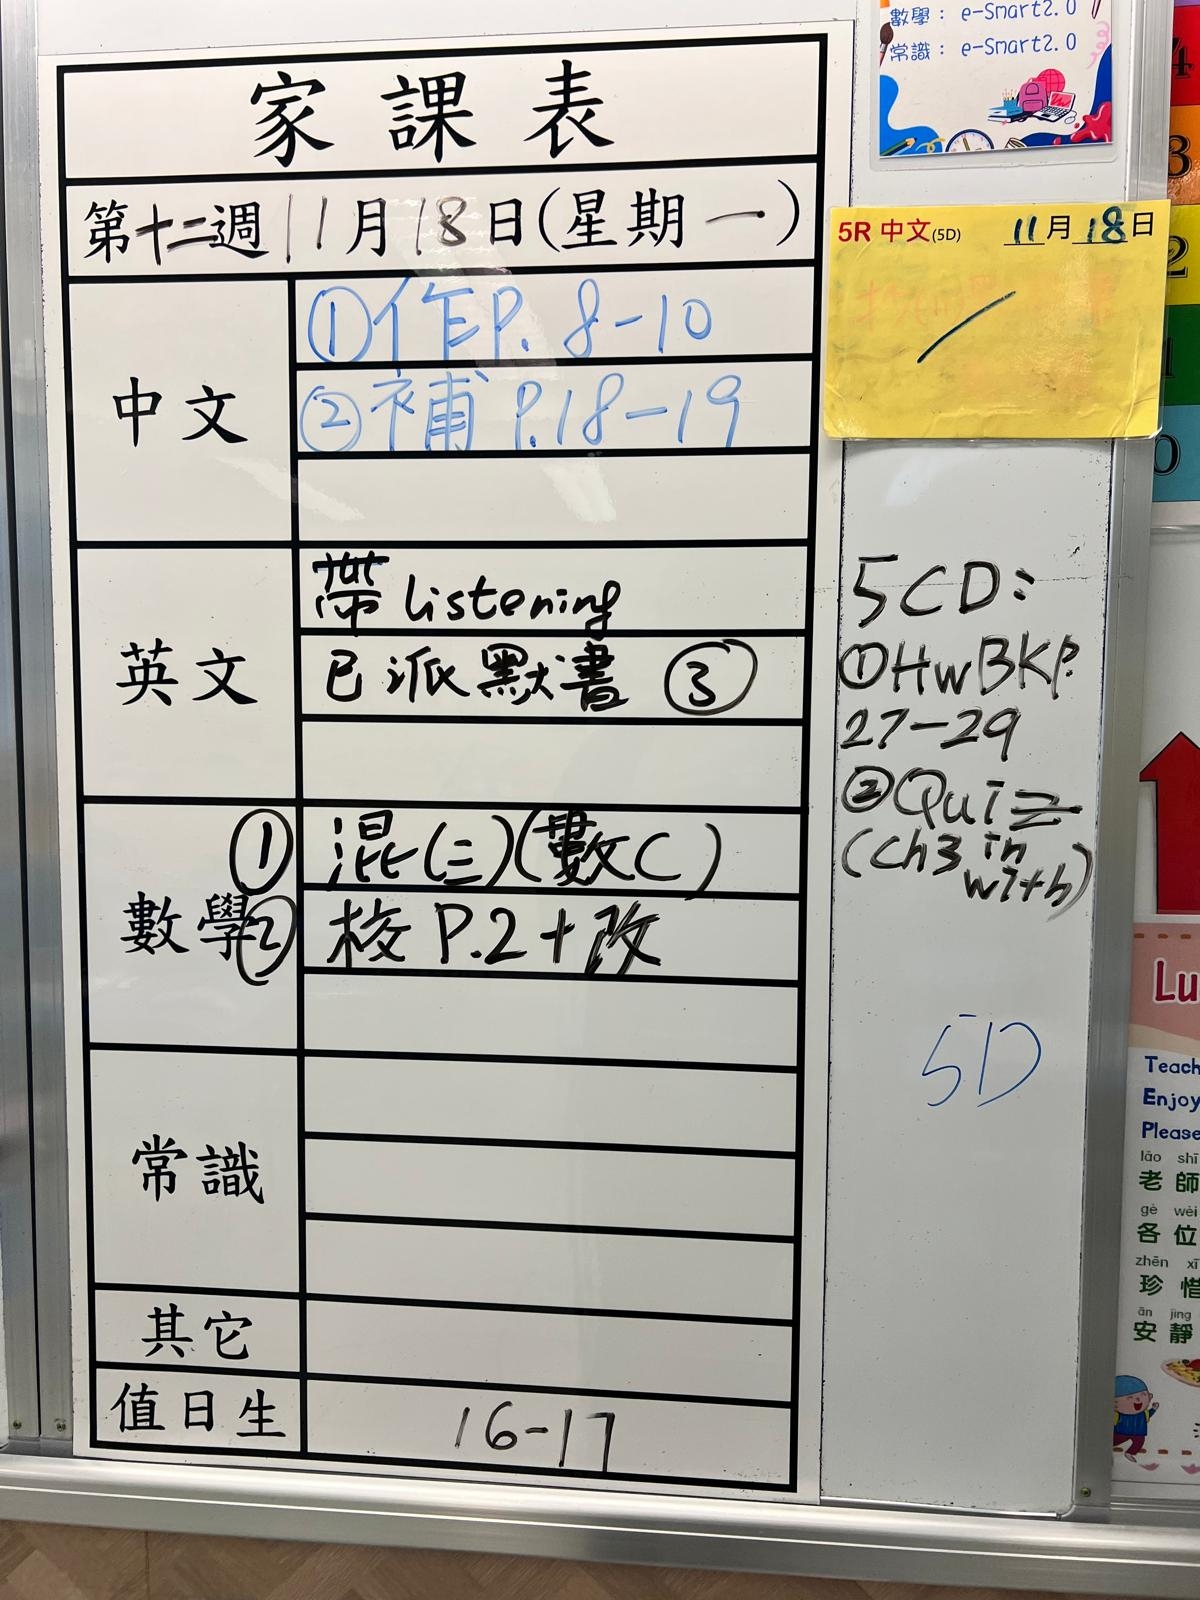 家課表
第十二週 11月18日(星期一)
中文
①作P. 8-10
②補 P.18-19
英文
帶 Listening
已派默書 ③
數學
① 混(三)(數C)
② 校 P.2+改
常識
其它
值日生
16-17
數學： e-Smart2.0
常識： e-Smart2.0
5R 中文(5D) 11月18日
5CD:
①HWBKP.
27-29
②Quiz
(Ch3 in
with)
5D
4
3
2
1
0
Lu
Teach
Enjoy
Please
lǎo shī
老師
gè wèi
各位
zhēn xī
珍惜
ān jìng
安靜